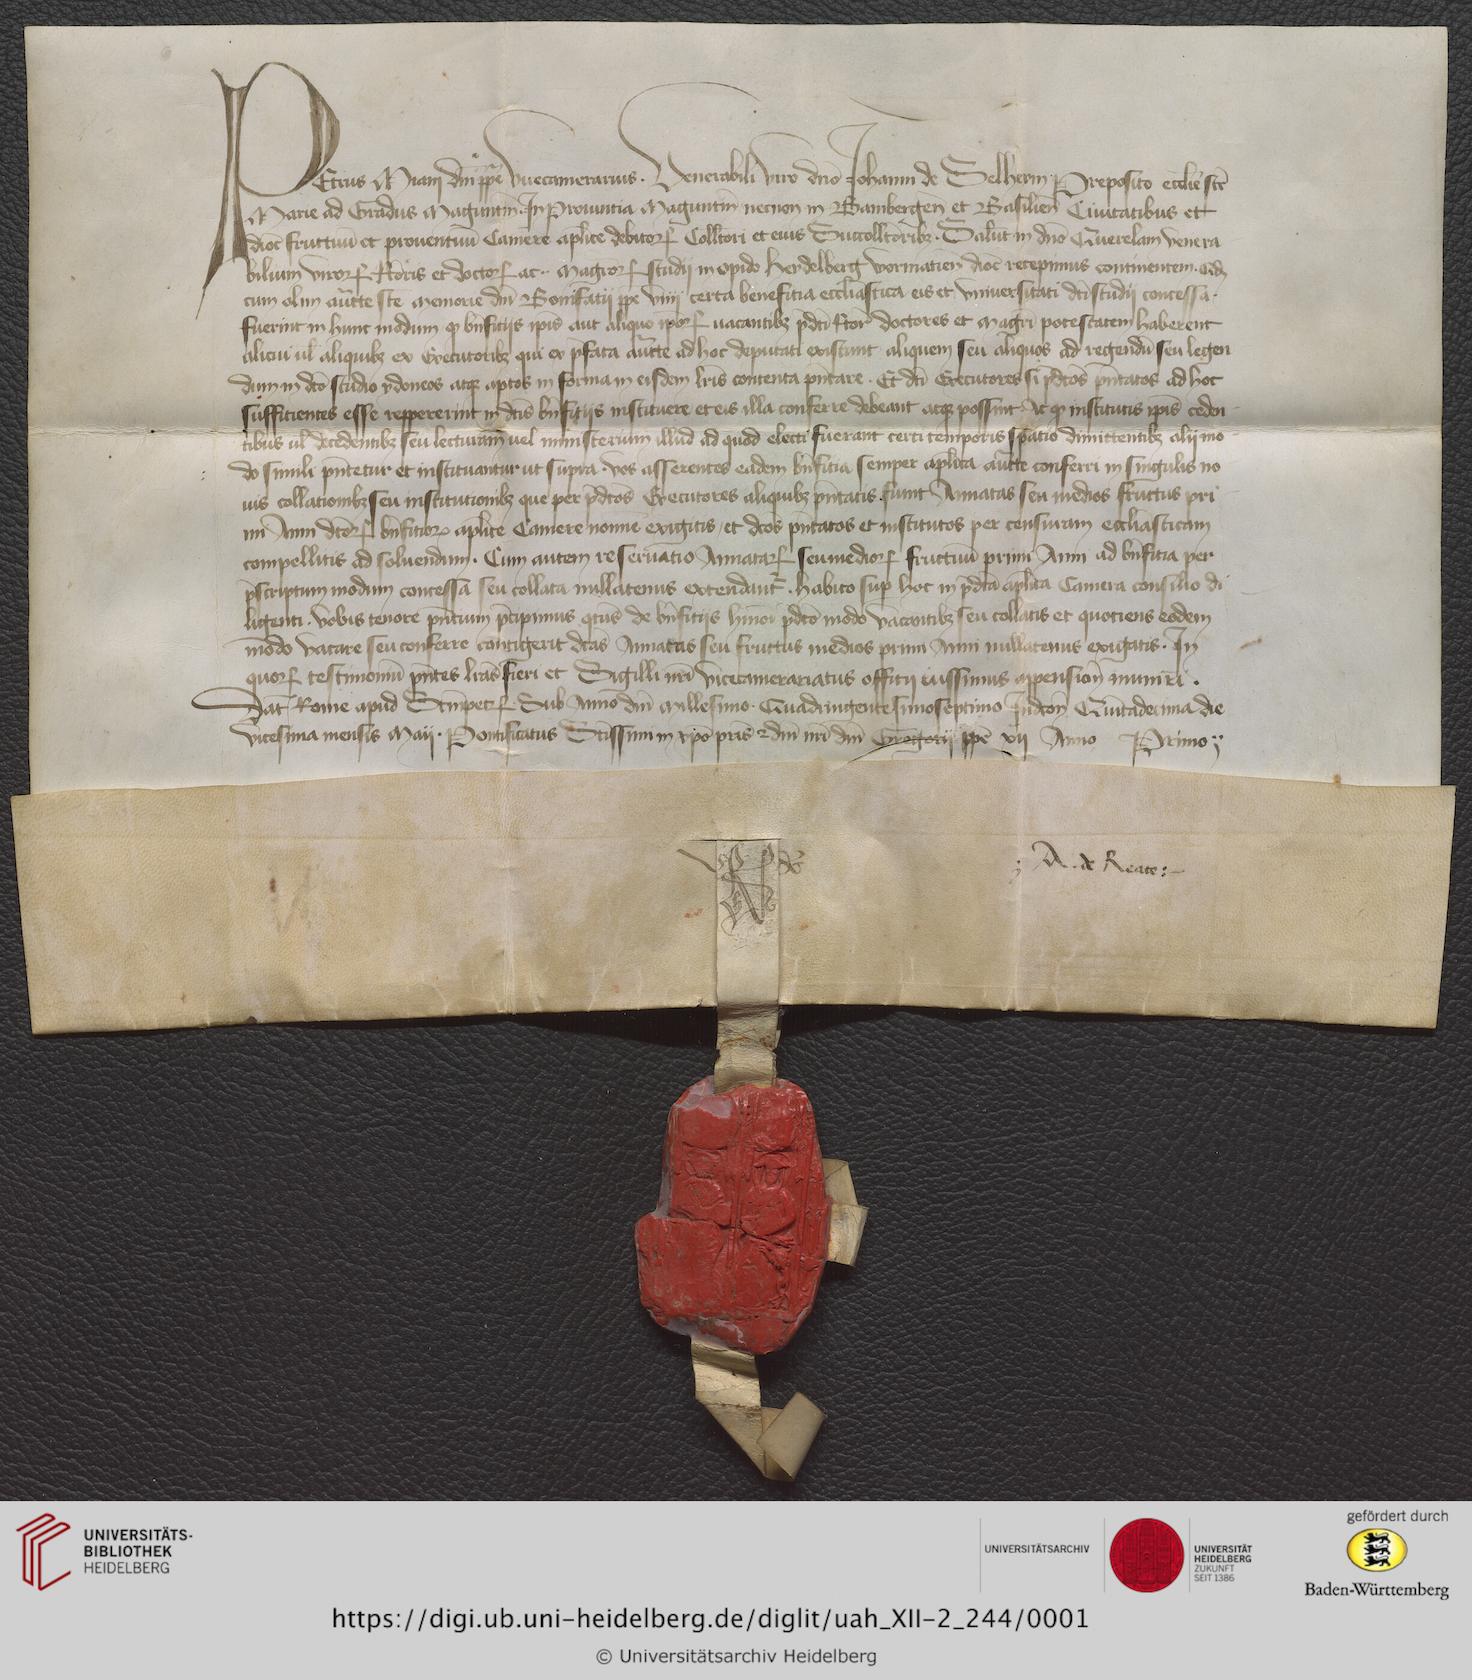 Petrus Miani dni ppe Vicecamerarius. Venerabili viro dno Johanni de Selhem Preposito ecclie scte
Marie ad Gradus Maguntin In Provintia Maguntin necnon in Bambergen et Basilien Civitatibus et
dioc fructuu et proventuu Camere aplice debitor Collctori et eius Succollctoribz. Salut in dno Querelam venera
bilium viror Rcoris et doctor ac magror studii in opido Heydelberg wormatien dioc recepimus continentem. Qd
cum olim aucte scte memorie dni Bonifatii ppe viiii certa benefitia eccliastica eis et universitati dcti studii concessa.
fuerint in hunc modum q bnfitiis ipis aut aliquo ipor vacantibz pdcti rctor doctores et magri potestatem haberent
alicui ul aliquibz ex Executoribz qui ex pfata aucte ad hoc deputati existunt aliquem seu aliquos ad regendu seu legen
dum in dco studio ydoneos atqz aptos in forma in eisdem lris contenta pntare. Et dcti Executores si pdctos pntatos ad hoc
sufficientes esse reppererint in dctis bnfitiis instituere et eis illa conferre debeant atqz possint Ac q institutis ipis ceden
tibus ul decedentibz seu lecturam vel ministerium illud ad quod electi fuerant certi temporis spatio dimittentibz alii mo
do simili pntetur et instituantur ut supra. vos asserentes eadem bnfitia semper aplica aucte conferri in singulis no
uis collationibz seu institutionibz que per pdctos Executores aliquibz pntatis fiunt Annatas seu medios fructus pri
mi Anni dctor bnfitior aplice Camere nomine exigitis et dctos pntatos et institutos per censuram eccliasticam
compellitis ad solvendum. Cum autem reservatio Annatar seu medior fructuu primi Anni ad bnfitia per
pscriptum modum concessa seu collata nullatenus extendant. habito sup hoc in pdcta aplica Camera consilio di
ligenti. vobis tenore pntium pcipimus qtus de bnfitiis hmoi pdcto modo vacantibz seu collatis et quotiens eodem
modo vacare seu conferre contigerit dctas Annatas seu fructus medios primi Anni nullatenus exigatis. In
quor testimoniu pntes lras fieri et Sigilli nri vicecamerariatus officii iussimus appension muniri.
Dat Rome apud Sctmpetr Sub Anno dni Millesimo Quadringentesimoseptimo Indcon Quintadecima die
vicesima mensis Maii. Pontificatus Sctissimi in xpo pris et dni nri dni Gregorii ppe xii Anno Primo
A. de Reate
UNIVERSITÄTS-
BIBLIOTHEK
HEIDELBERG
UNIVERSITÄTSARCHIV
UNIVERSITÄT
HEIDELBERG
ZUKUNFT
SEIT 1386
gefördert durch
Baden-Württemberg
https://digi.ub.uni-heidelberg.de/diglit/uah_XII-2_244/0001
© Universitätsarchiv Heidelberg